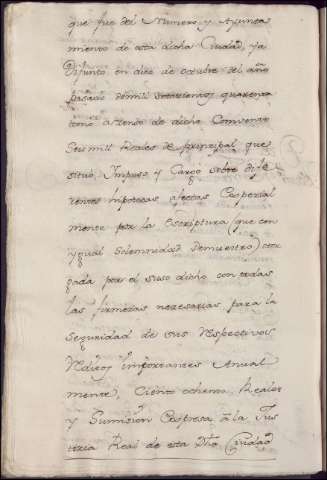 que fue del Numero, y Ayunta
miento de esta dicha Ciudad, ya
Difunto, en diez de octubre del año
pasado de mil setecientos quarenta
tomó a censo de dicho Convento
Seis mil Reales de principal que
situó, Impuso y Cargó sobre dife
rentes hipotecas afectas Especial
mente por la Escriptura (que con
ygual Solemnidad Demuestro) otor
gada por el suso dicho con todas
las firmezas necesarias para la
seguridad de sus Respectivos
Reditos Importantes Anual
mente, Ciento ochenta Reales
y Sumision Expresa â la Jus
ticia Real de esta Dha Ciudad